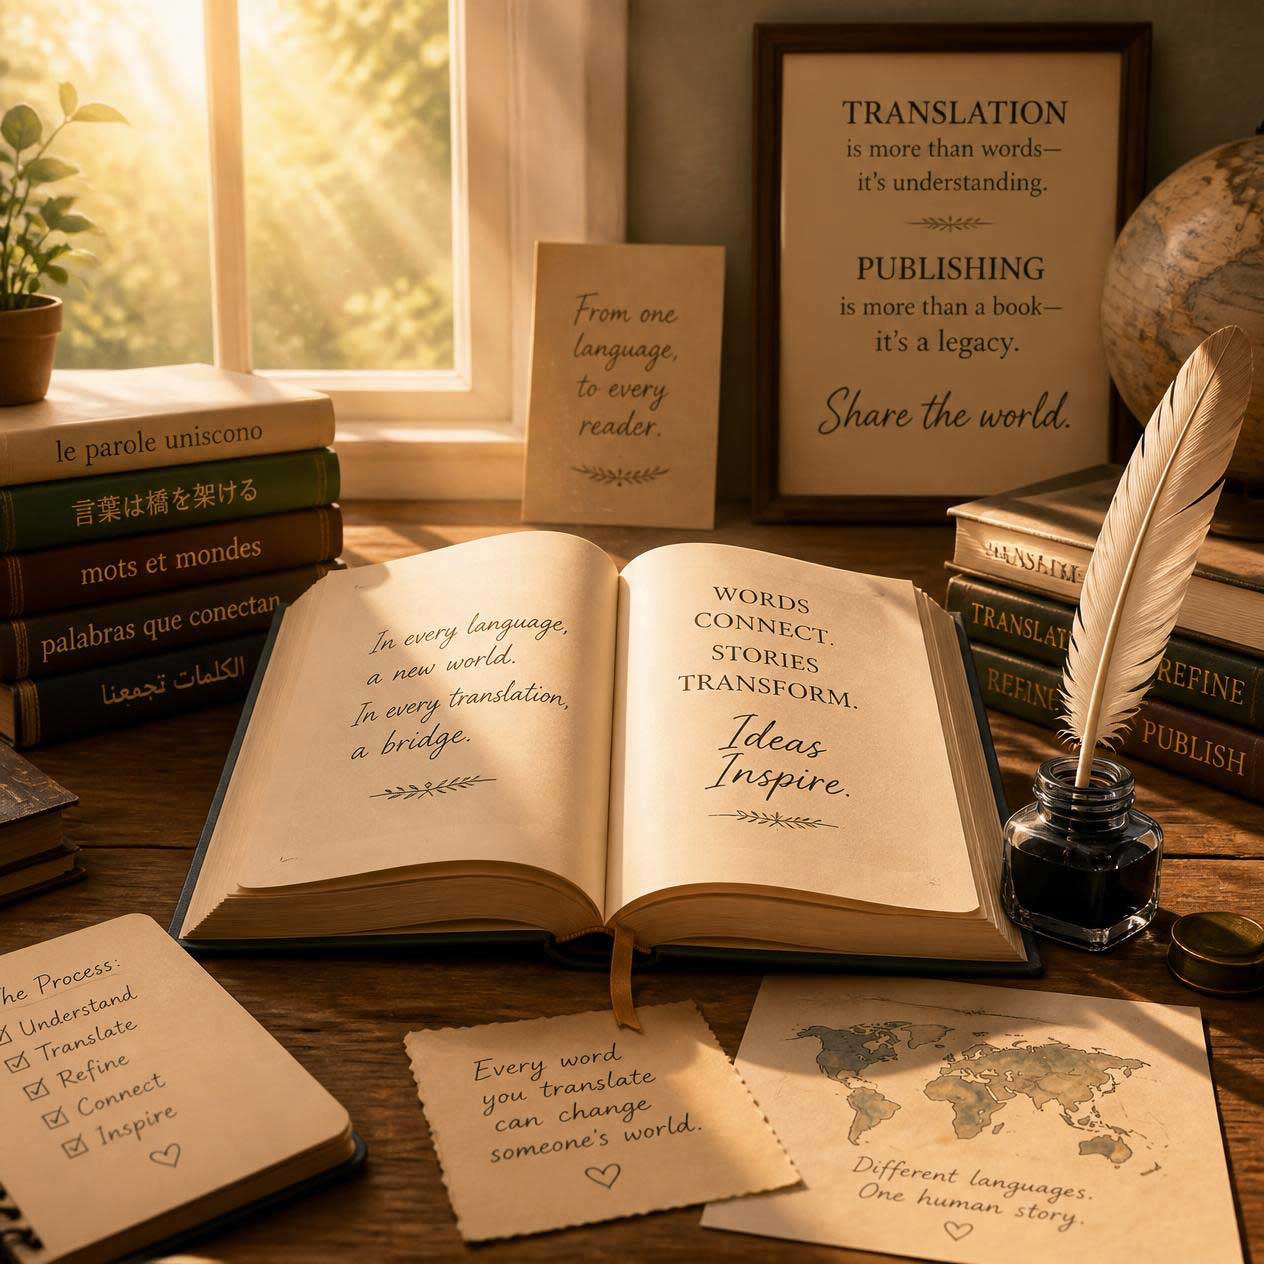 TRANSLATION
is more than words—
it's understanding.
PUBLISHING
is more than a book—
it's a legacy.
Share the world.
From one
language,
to every
reader.
le parole uniscono
言葉は橋を架ける
mots et mondes
palabras que conectan
الكلمات تجمعنا
In every language,
a new world.
In every translation,
a bridge.
WORDS
CONNECT.
STORIES
TRANSFORM.
Ideas
Inspire.
REFINE
PUBLISH
Process:
Understand
Translate
Refine
Connect
Inspire
Every word
you translate
can change
someone's world.
Different languages.
One human story.